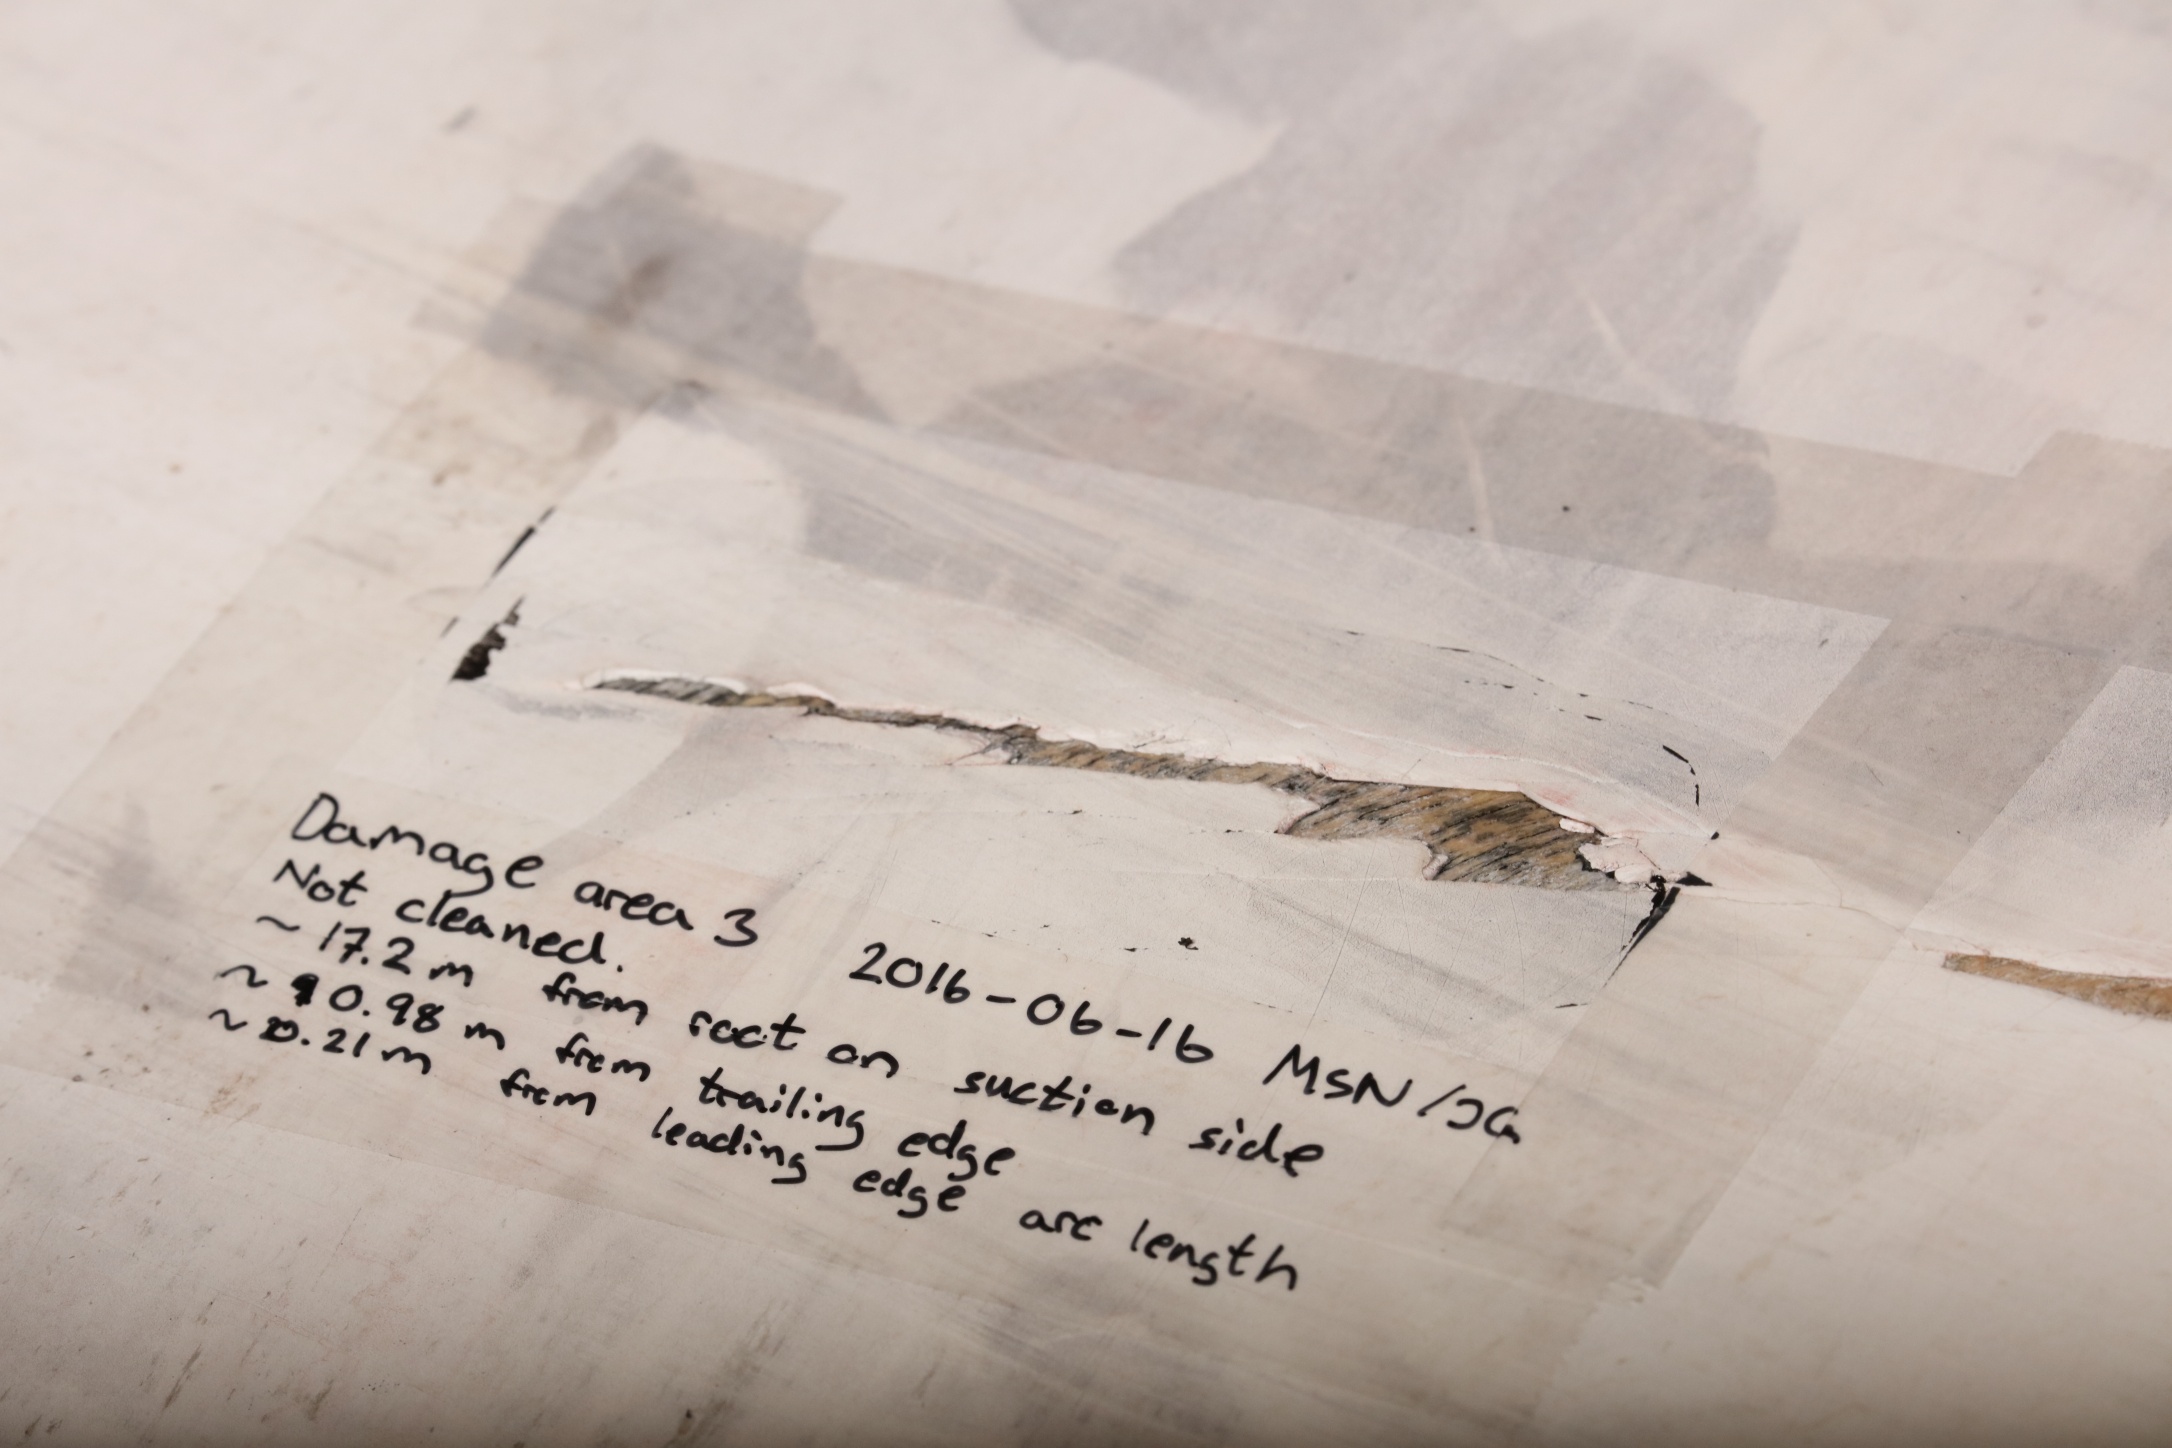 Damage area 3 2016-06-16 MSN/JG
Not cleaned.
~ 17.2 m from root on suction side
~ 0.98 m from trailing edge
~ 0.21 m from leading edge arc length